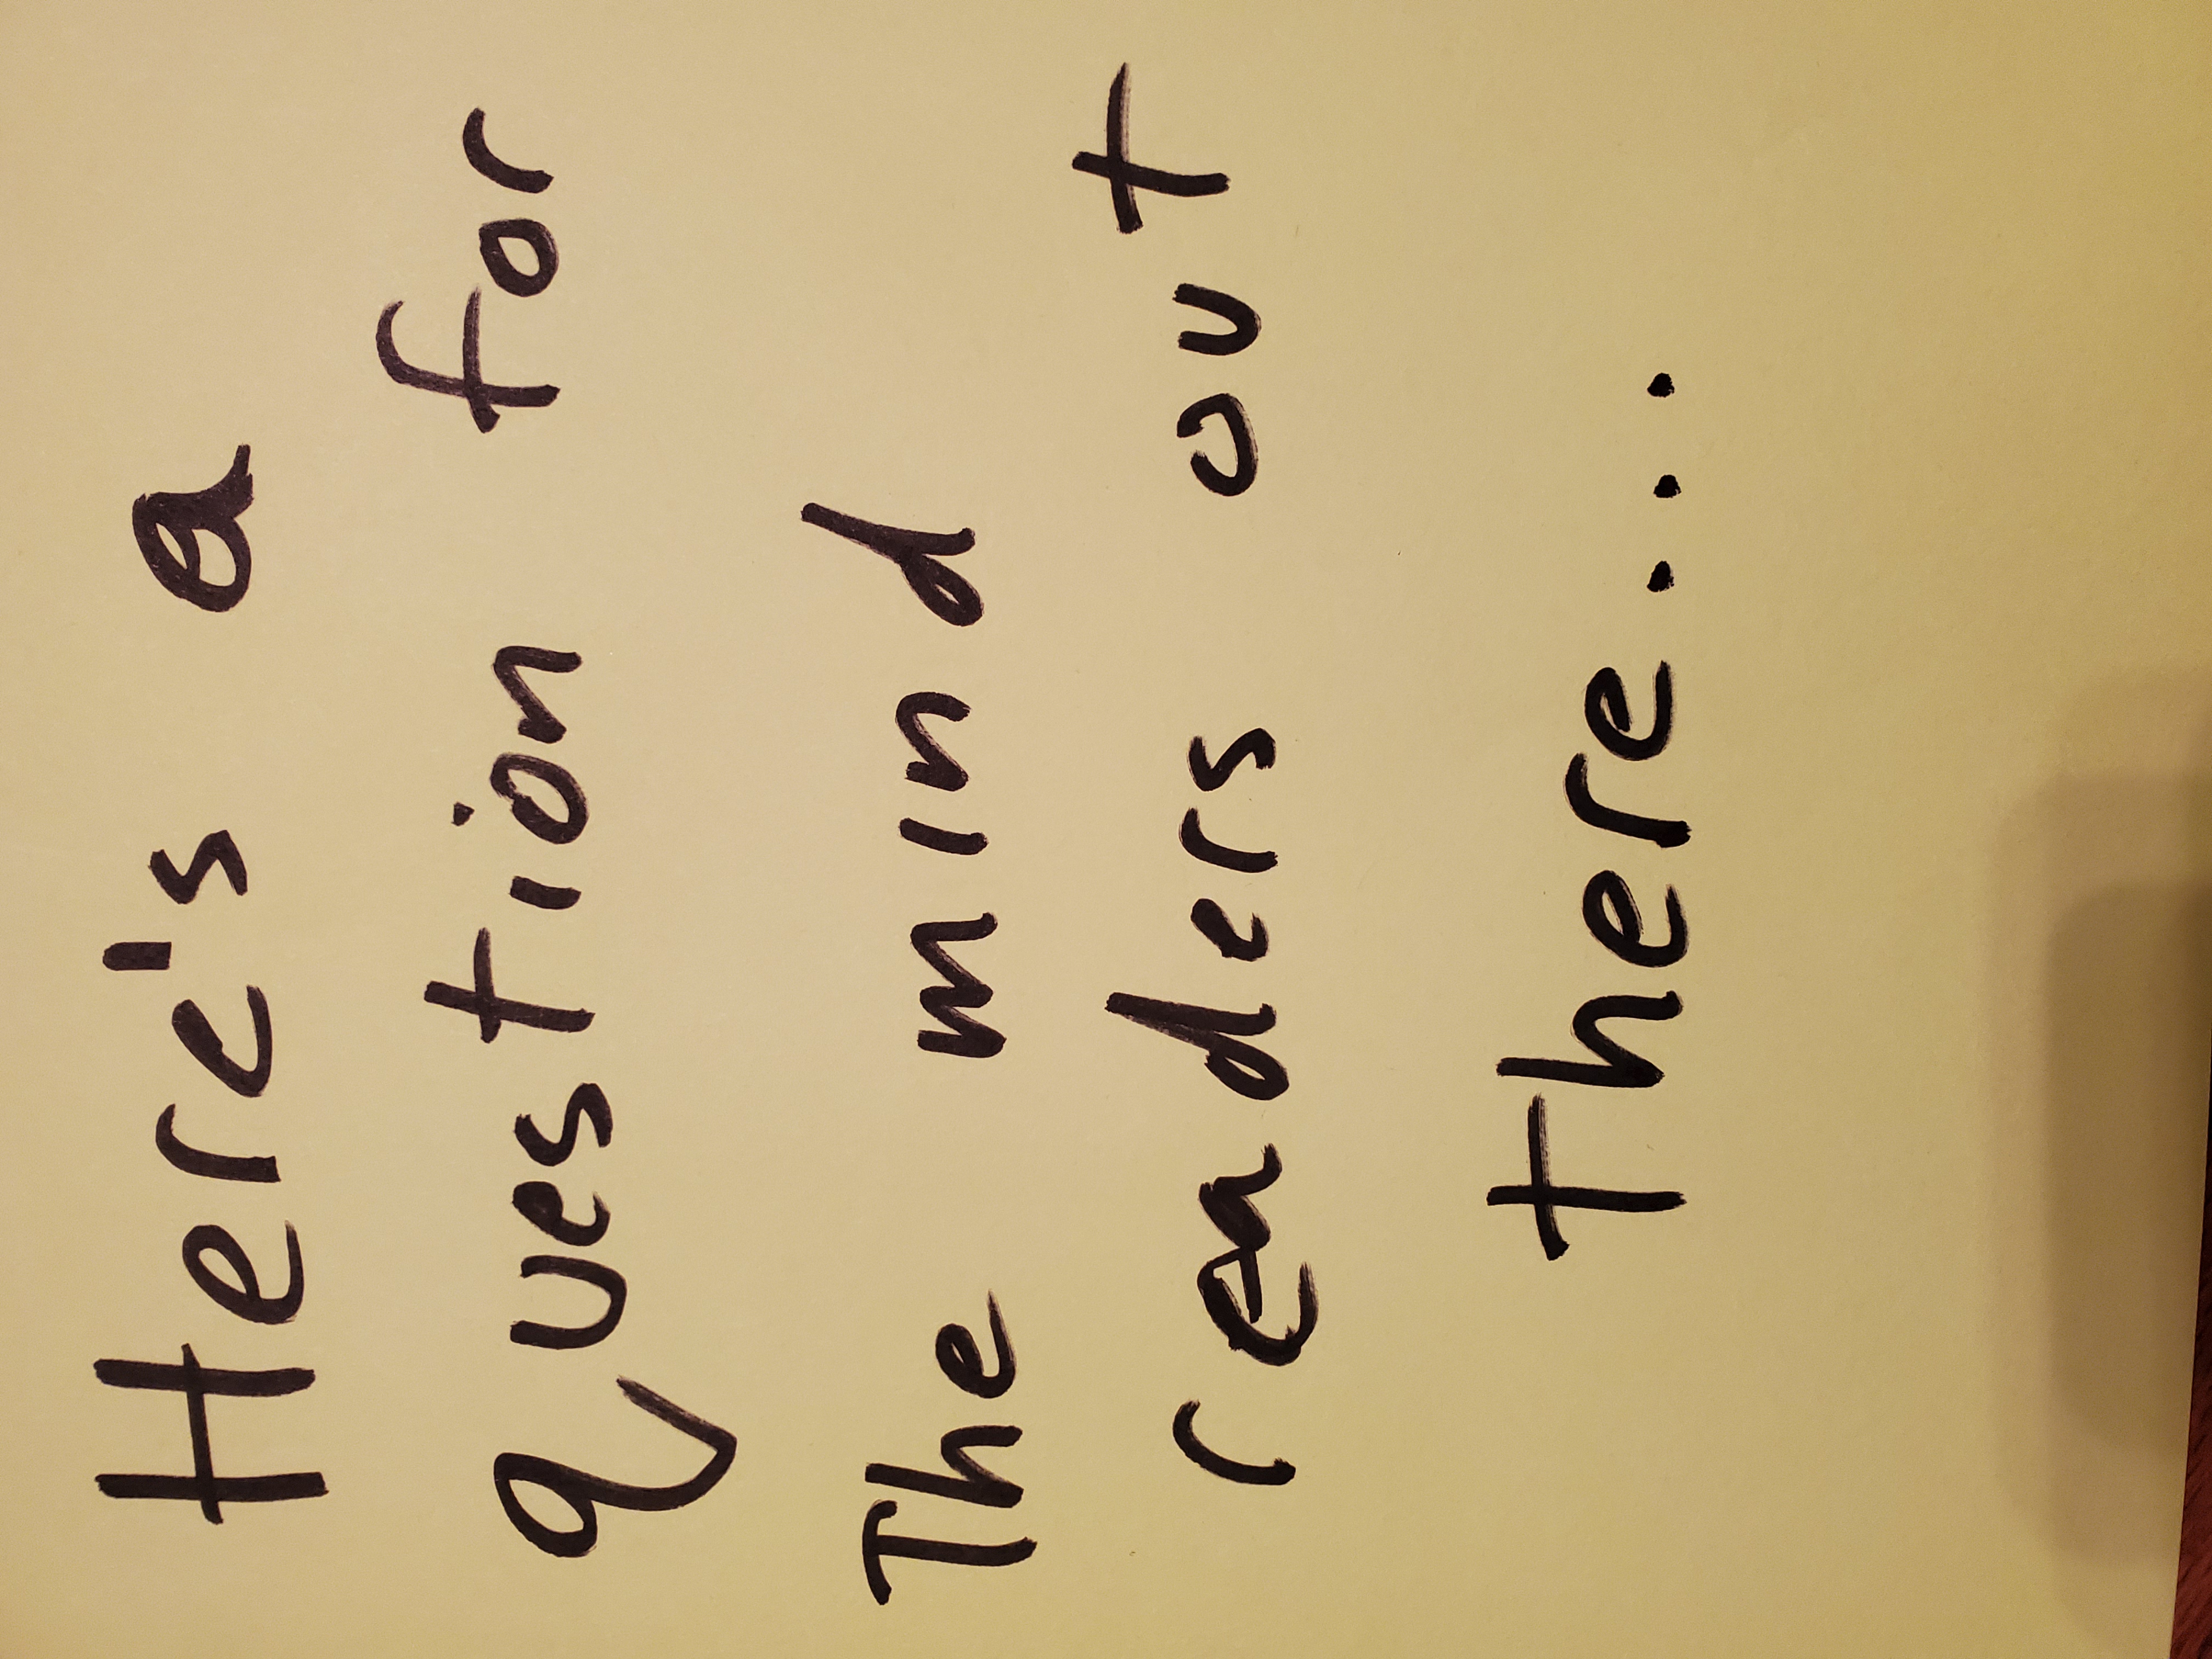 Here's a
question for
The mind
readers out
there...